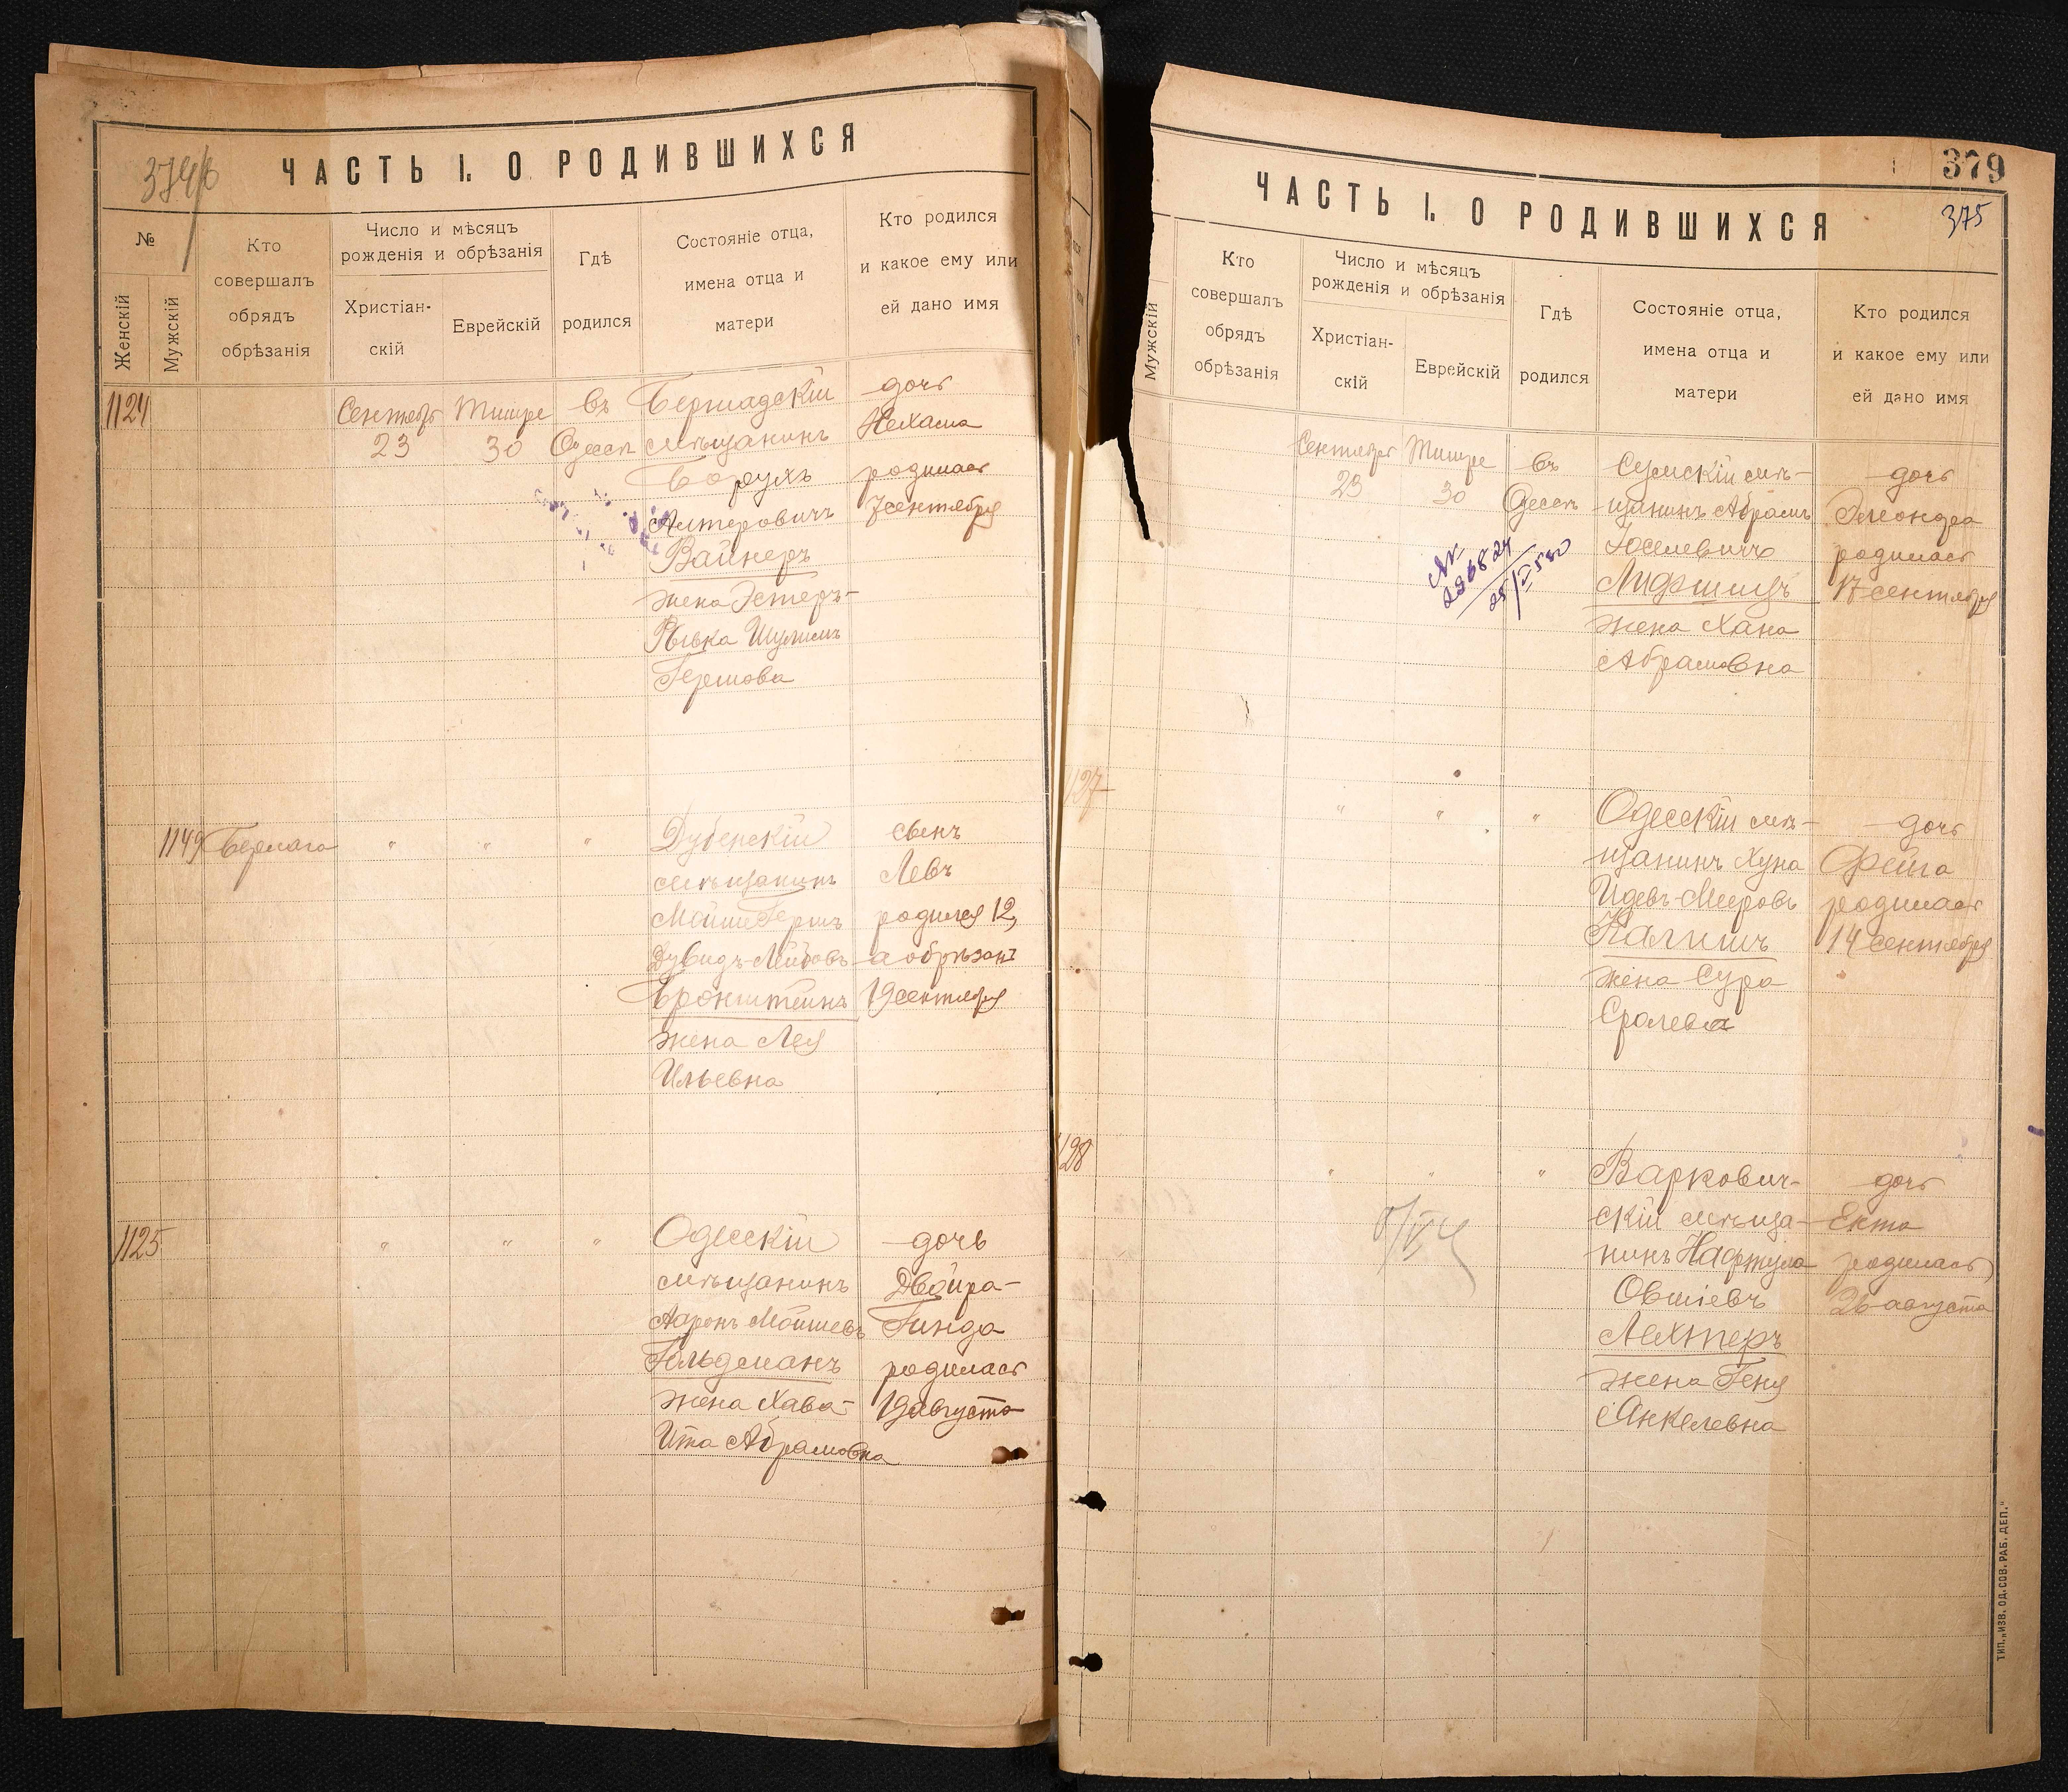 374/б
ЧАСТЬ I. О РОДИВШИХСЯ
№
Женскій
Мужскій
Кто
совершалъ
обрядъ
обрѣзанія
Число и мѣсяцъ
рожденія и обрѣзанія
Христіан-
скій
Еврейскій
Гдѣ
родился
Состояніе отца,
имена отца и
матери
Кто родился
и какое ему или
ей дано имя
1124
Сентябр
23
Тишре
30
въ
Одессѣ
Бершадскій
мѣщанинъ
Борухъ
Алтеровичъ
Вайнеръ
жена Эстеръ-
Рывка Шулимъ
Гершова
дочь
Нехама
родилась
7 сентября
1149
Бермага
"
"
"
Дубенскій
мѣщанинъ
Мойше Гершъ
Дувидъ-Лейбовъ
Бронштейнъ
жена Лея
Ильевна
сынъ
Левъ
родился 12,
а обрѣзанъ
19 сентября
1125
"
"
"
Одесскій
мѣщанинъ
Ааронъ Мошшевъ
Гольдманъ
жена Хава-
Ита Абрамовна
дочь
Двойра-
Гинда
родилась
19 августа
379
375
ЧАСТЬ I. О РОДИВШИХСЯ
Мужскій
Кто
совершалъ
обрядъ
обрѣзанія
Число и мѣсяцъ
рожденія и обрѣзанія
Христіан-
скій
Еврейскій
Гдѣ
родился
Состояніе отца,
имена отца и
матери
Кто родился
и какое ему или
ей дано имя
Сентября
23
Тишре
30
въ
Одессѣ
Сумскій мѣ-
щанинъ Абрамъ
Юселевичъ
Лифшицъ
жена Хана
Абрамовна
дочь
Элеондра
родилась
17 сентября
127
"
"
"
Одесскій мѣ-
щанинъ Хуна
Идевъ-Мееровъ
Калишъ
жена Сура
Сролева
дочь
Фейга
родилась
14 сентября
128
"
"
"
Варкович-
скій мѣща-
нинъ Нафтула
Овшіевъ
Лехтеръ
жена Геня
Анкелевна
дочь
Екта
родилась
26 августа
ТИП. „ИЗВ. ОД. СОВ. РАБ. ДЕП."